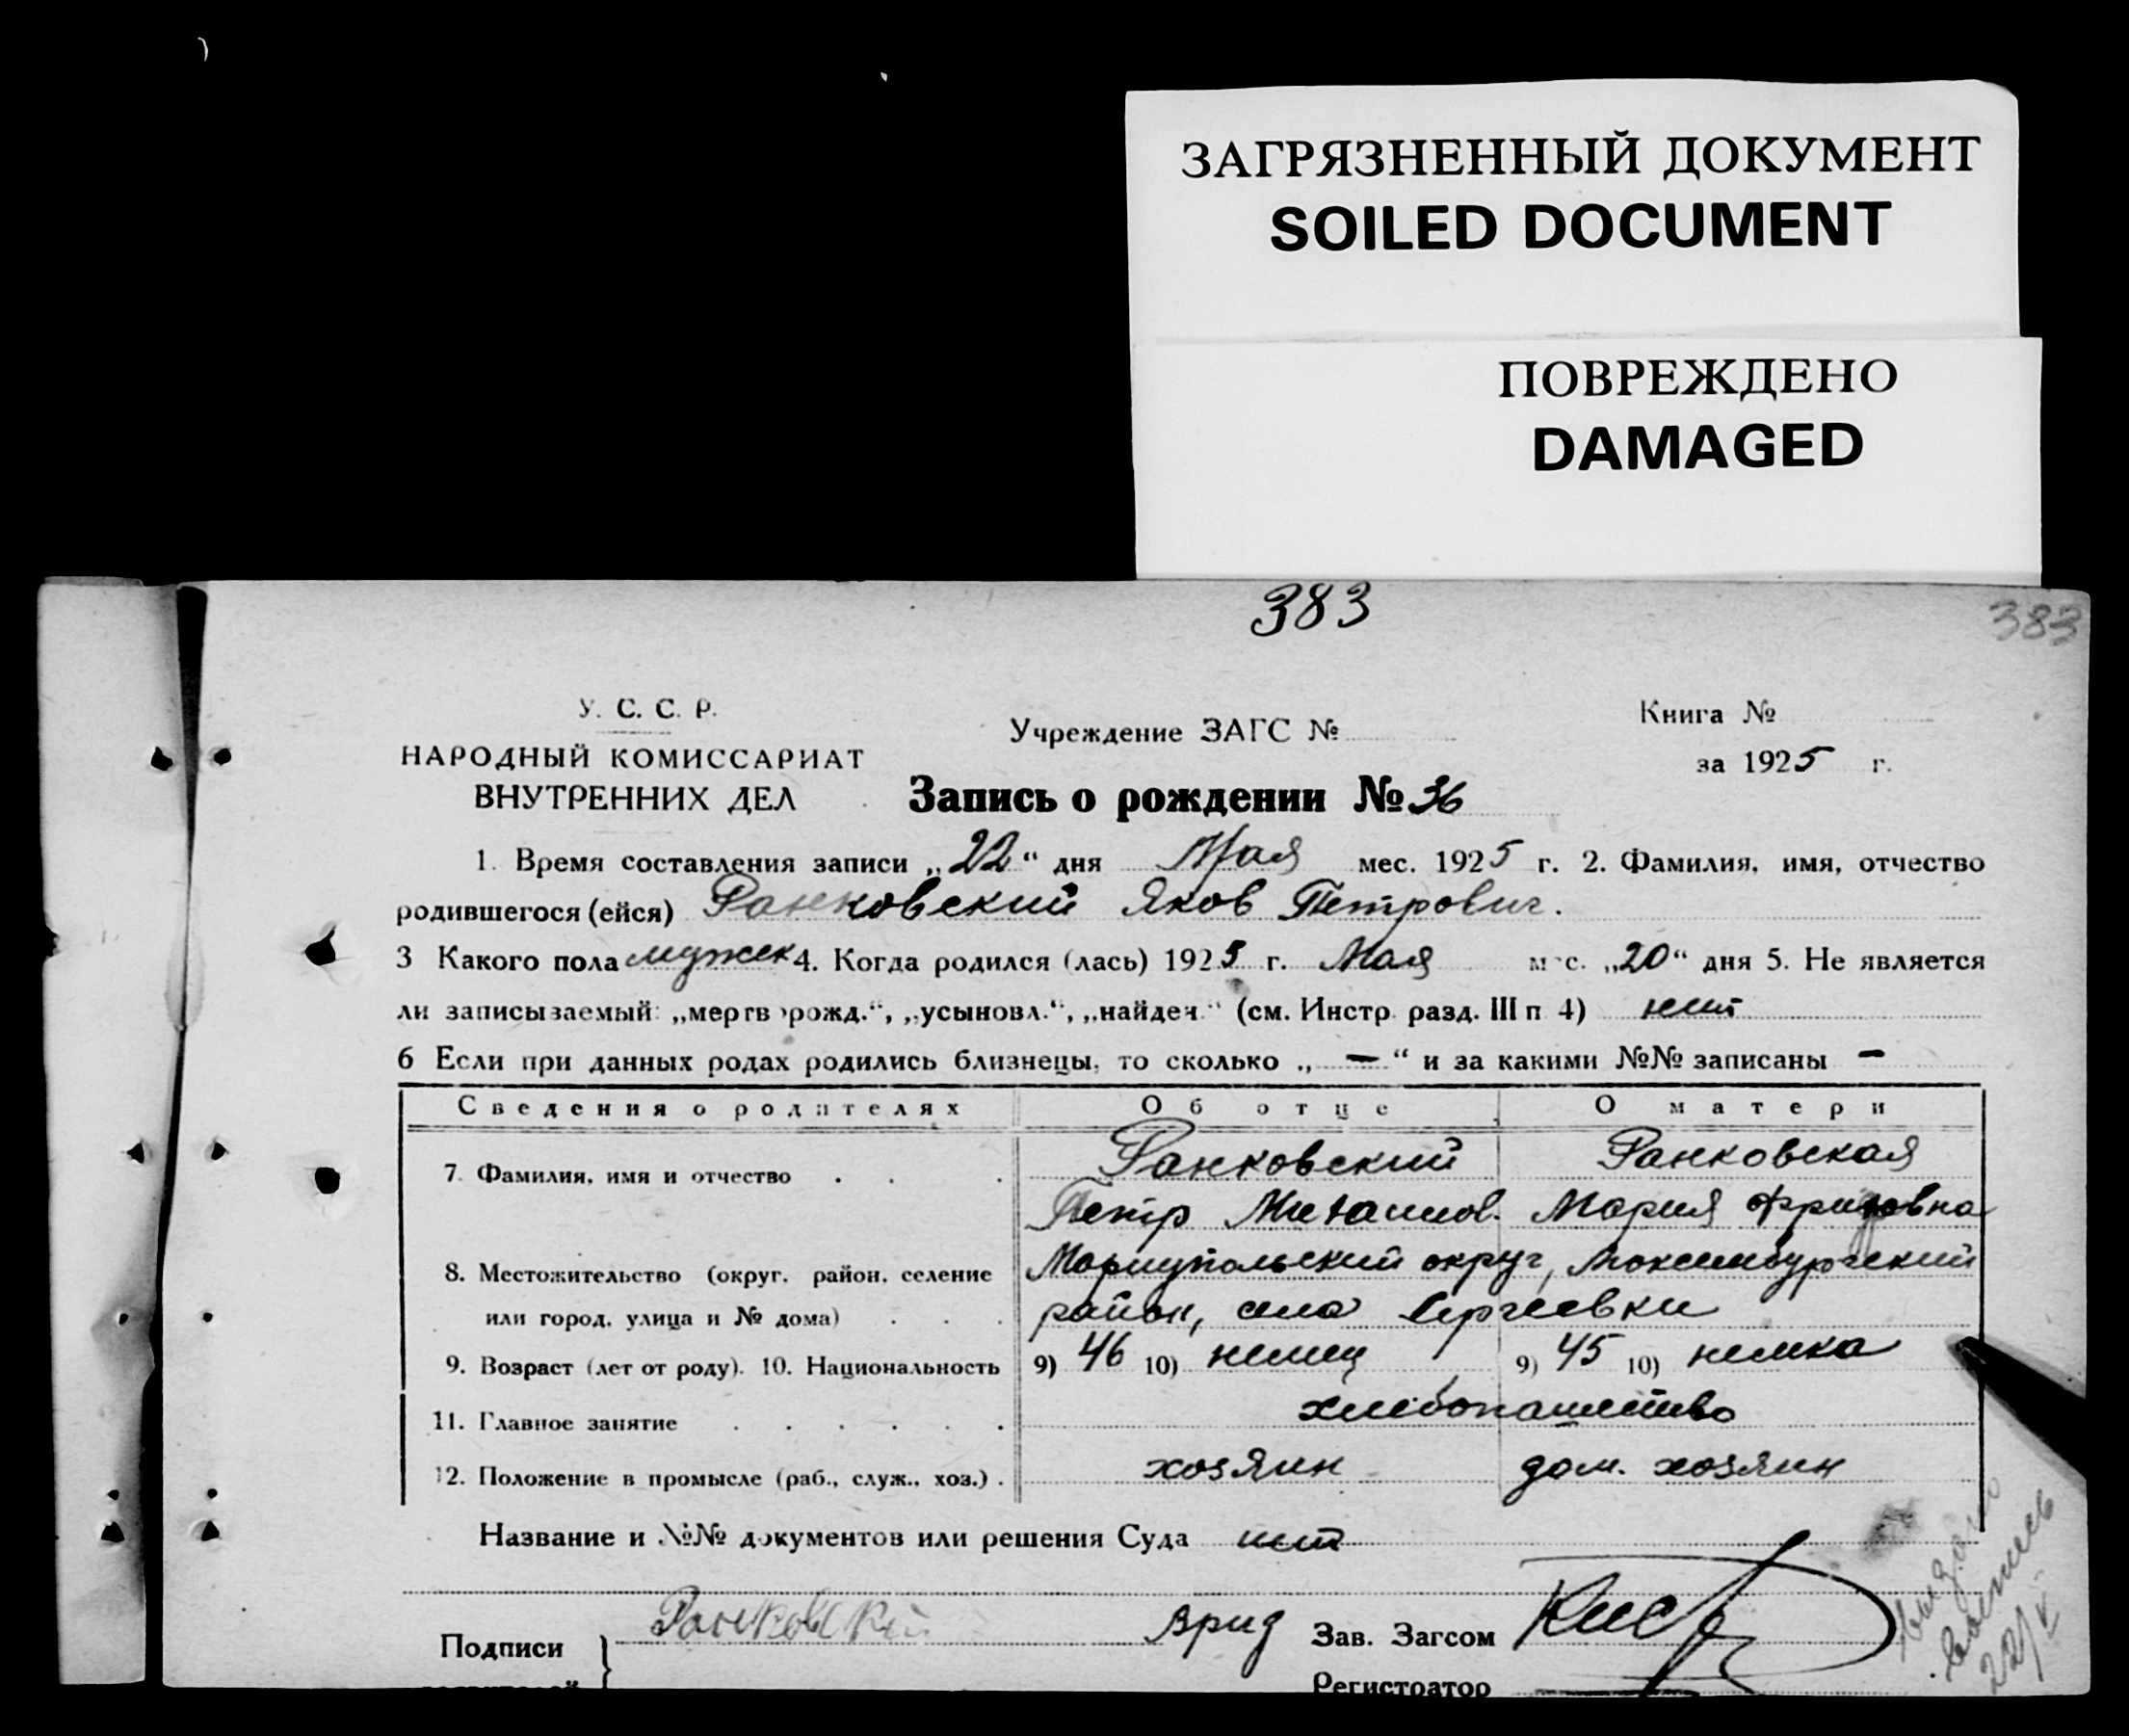 ЗАГРЯЗНЕННЫЙ ДОКУМЕНТ
SOILED DOCUMENT
ПОВРЕЖДЕНО
DAMAGED
383
383
У. С. С. Р.
НАРОДНЫЙ КОМИССАРИАТ
ВНУТРЕННИХ ДЕЛ
Учреждение ЗАГС №
Книга №
за 1925 г.
Запись о рождении № 36
1. Время составления записи „22“ дня Мая мес. 1925 г. 2. Фамилия, имя, отчество
родившегося (ейся) Ранковский Яков Петрович.
3 Какого пола мужск 4. Когда родился (лась) 1925 г. Мая мес. „20“ дня 5. Не является
ли записываемый: „мертворожд.“, „усыновл.“, „найден.“ (см. Инстр. разд. III п 4) нет
6 Если при данных родах родились близнецы, то сколько „ — “ и за какими №№ записаны —
Сведения о родителях Об отце О матери
7. Фамилия, имя и отчество . . . Ранковский Ранковская
Петр Михайлов. Мария
8. Местожительство (округ, район, селение Мариупольский округ,
или город, улица и № дома) . . . район, село Сергеевки
9. Возраст (лет от роду). 10. Национальность 9) 46 10) немец 9) 45 10) немка
11. Главное занятие . . . . . . хлебопашество
12. Положение в промысле (раб., служ., хоз.) . хозяин дом. хозяин
Название и №№ документов или решения Суда нет
Подписи } Ранковский Врид Зав. Загсом
Регистратор
22/V